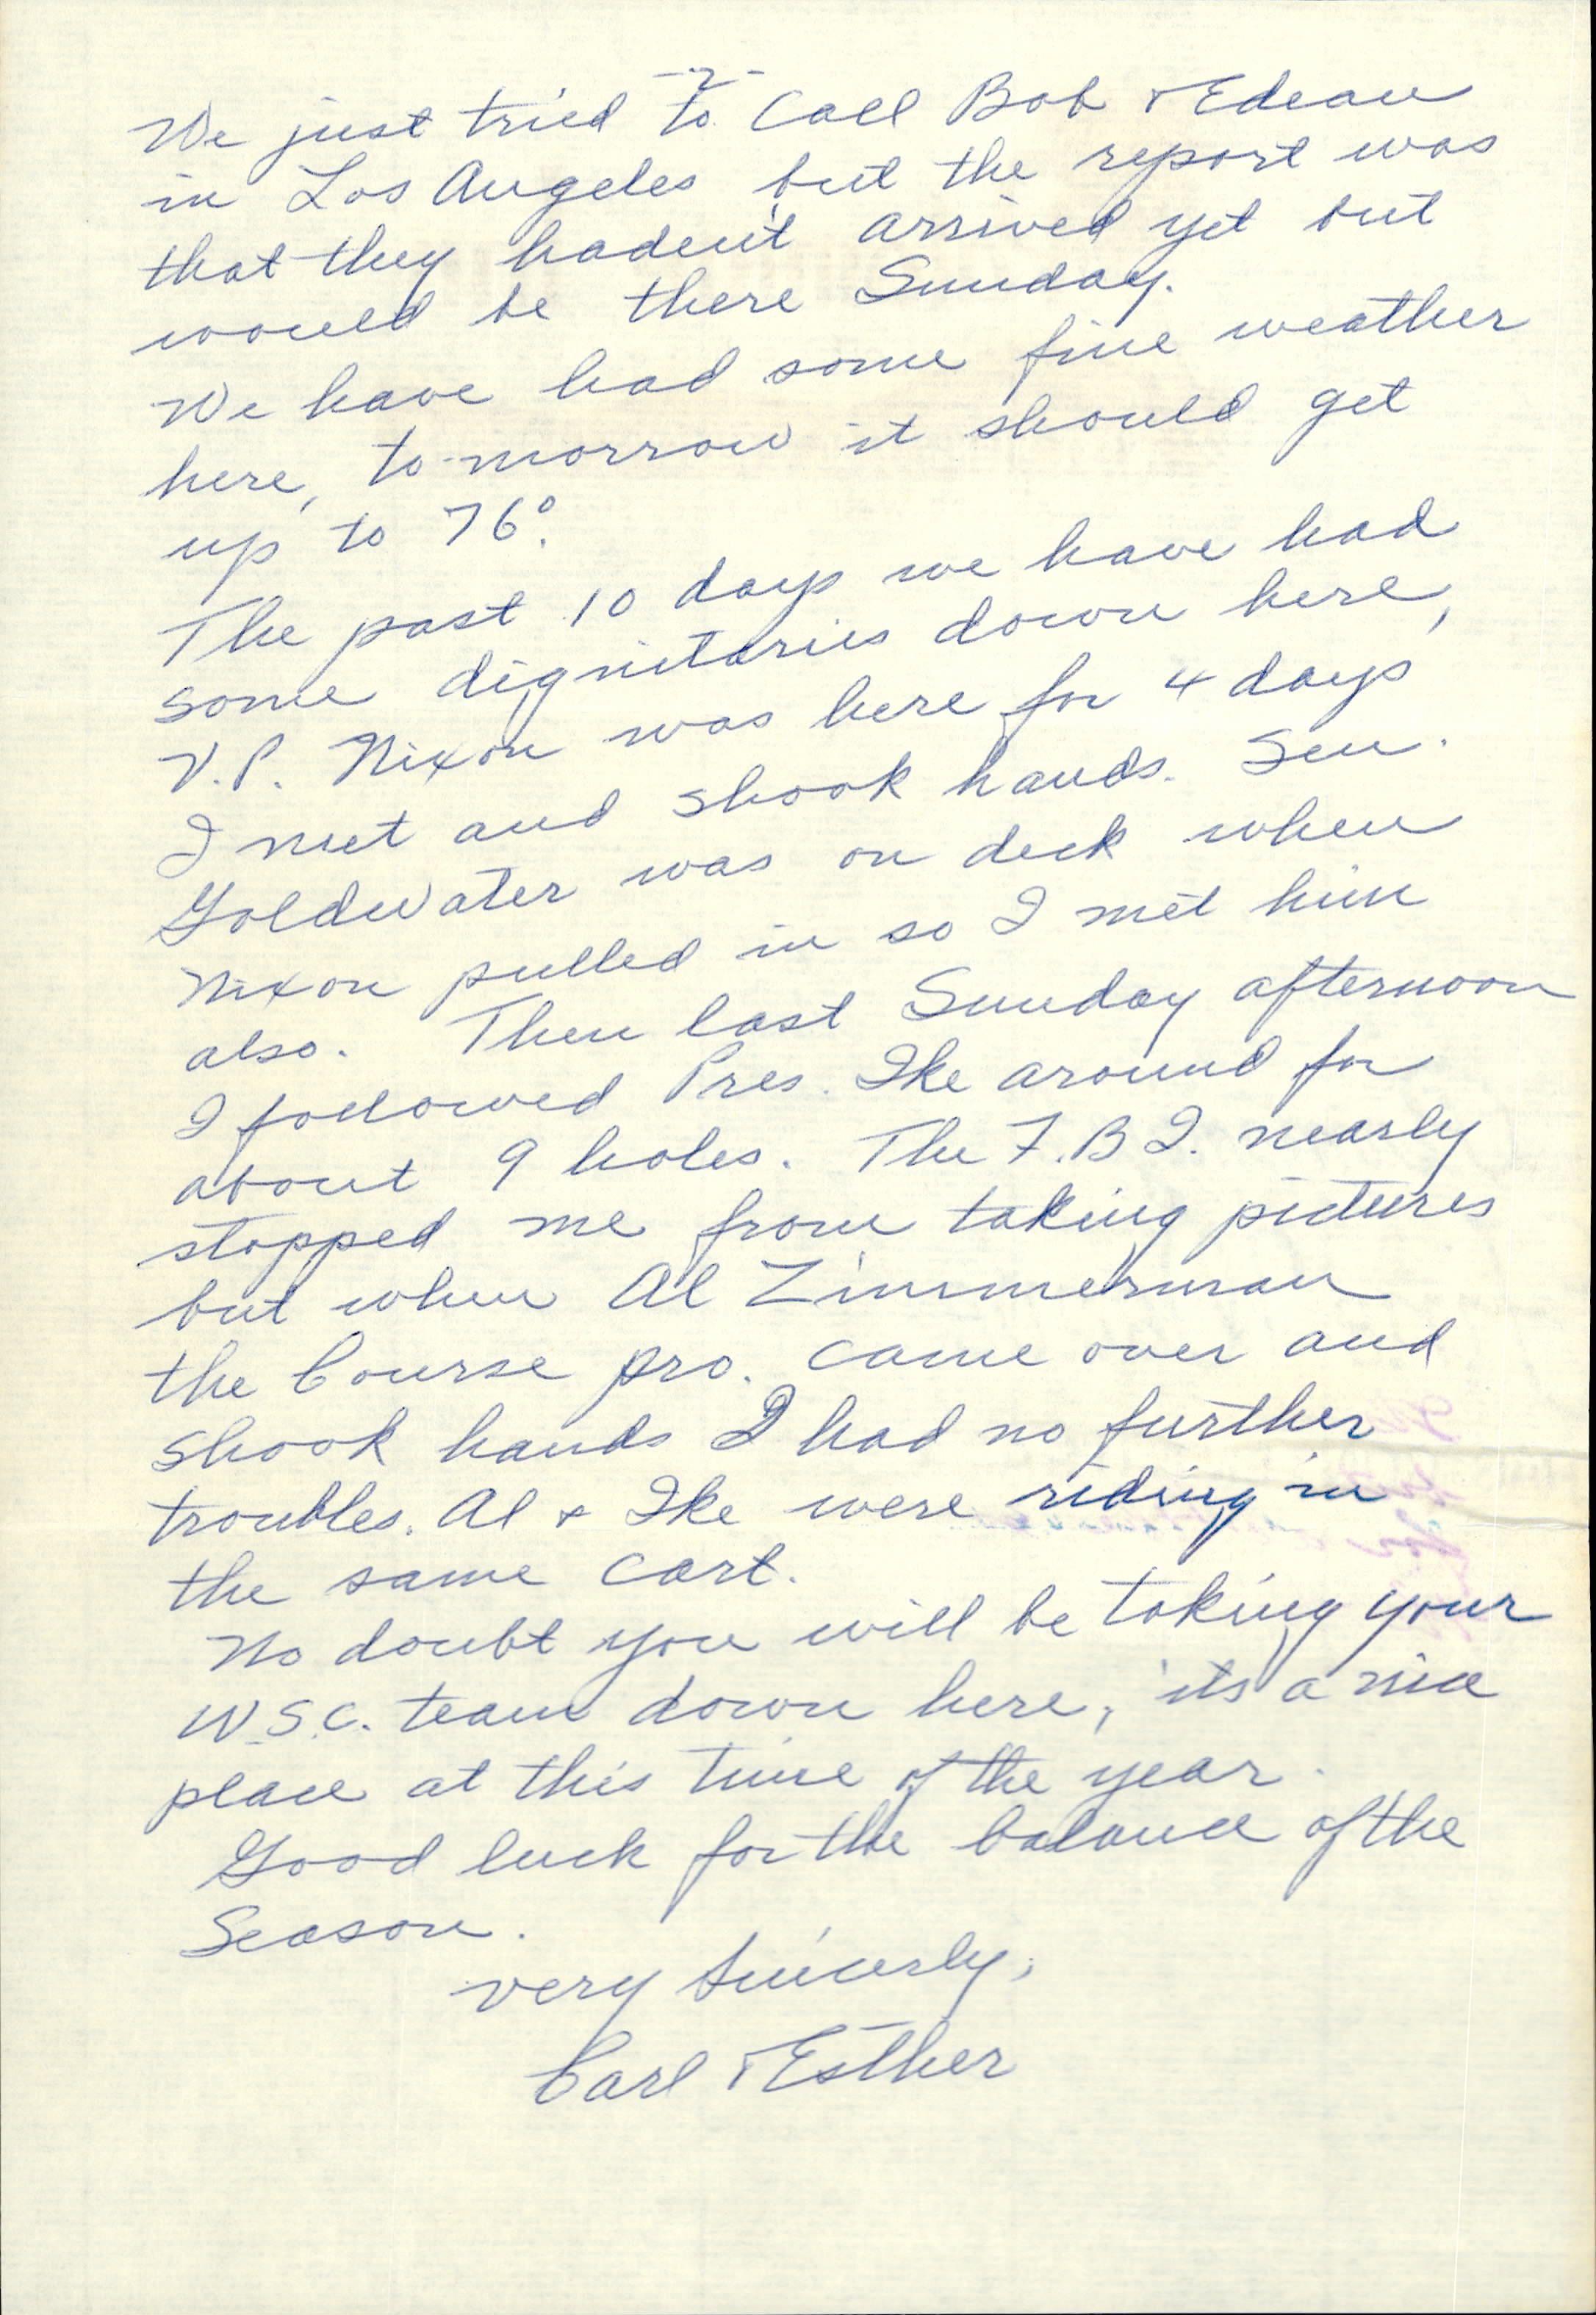 -2-
We just tried to call Bob & Edean
in Los Angeles but the report was
that they haden't arrived yet but
would be there Sunday.
We have had some fine weather
here, to-morrow it should get
up to 76°.
The past 10 days we have had
some dignitaries down here,
V.P. Nixon was here for 4 days
I met and shook hands. Sen.
Goldwater was on deck when
Nixon pulled in so I met him
also. Then last Sunday afternoon
I followed Pres. Ike around for
about 9 holes. The F.B.I. nearly
stopped me from taking pictures
but when Al Zimmerman
the Course pro. came over and
shook hands I had no further
troubles. Al & Ike were riding in
the same cart.
No doubt you will be taking your
W.S.C. team down here, its a nice
place at this time of the year.
Good luck for the balance of the
Season.
Very Sincerly,
Carl & Esther